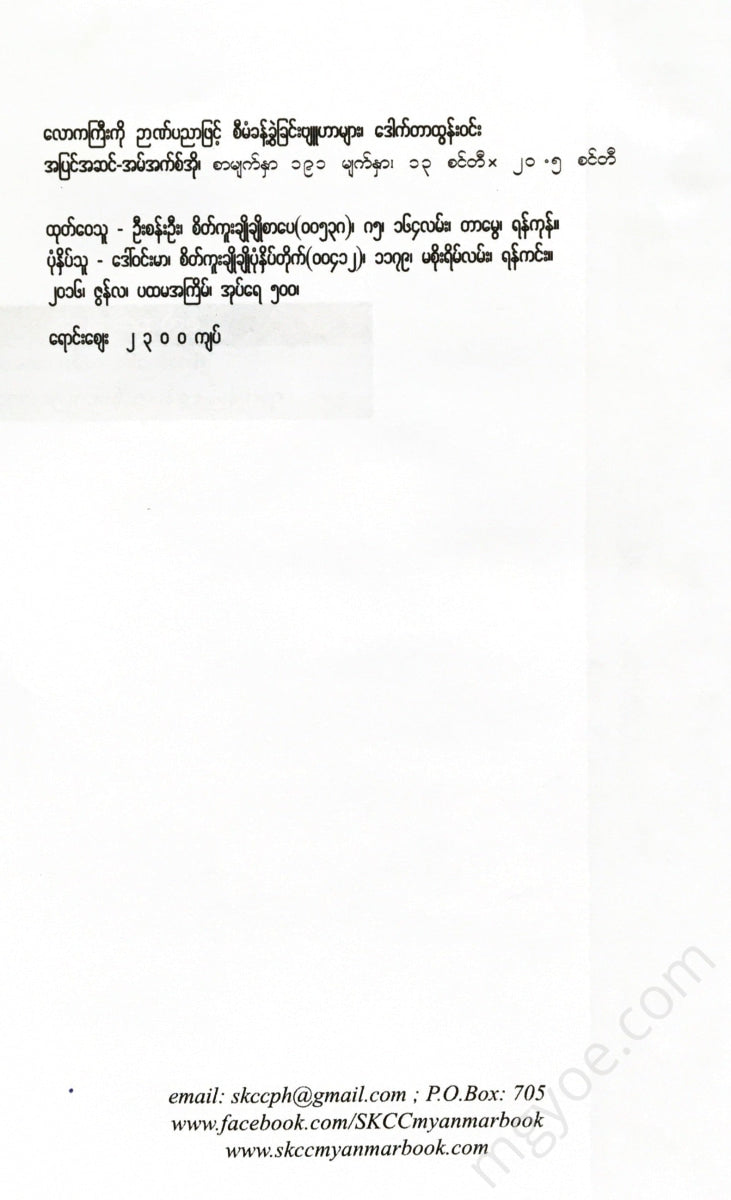 လောကကြီးကို ဉာဏ်ပညာဖြင့် စီမံခန့်ခွဲခြင်းဗျူဟာများ၊ ဒေါက်တာထွန်းဝင်း
အပြင်အဆင်-အမ်အက်စ်အို၊ စာမျက်နှာ ၁၉၁ မျက်နှာ၊ ၁၃ စင်တီ× ၂၀ .၅ စင်တီ
ထုတ်ဝေသူ - ဦးစန်းဦး၊ စိတ်ကူးချိုချိုစာပေ(၀၀၅၃၈)၊ ဂ၅၊ ၁၆၄လမ်း၊ တာမွေ၊ ရန်ကုန်။
ပုံနှိပ်သူ - ဒေါ်ဝင်းမာ၊ စိတ်ကူးချိုချိုပုံနှိပ်တိုက်(၀၀၄၁၂)၊ ၁၁၇၉၊ မစိုးရိမ်လမ်း၊ ရန်ကင်း။
၂၀၁၆၊ ဇွန်လ၊ ပထမအကြိမ်၊ အုပ်ရေ ၅၀၀၊
ရောင်းဈေး ၂ ၃ ၀ ၀ ကျပ်
email: skccph@gmail.com ; P.O.Box: 705
www.facebook.com/SKCCmyanmarbook
www.skccmyanmarbook.com
mgyoe.com